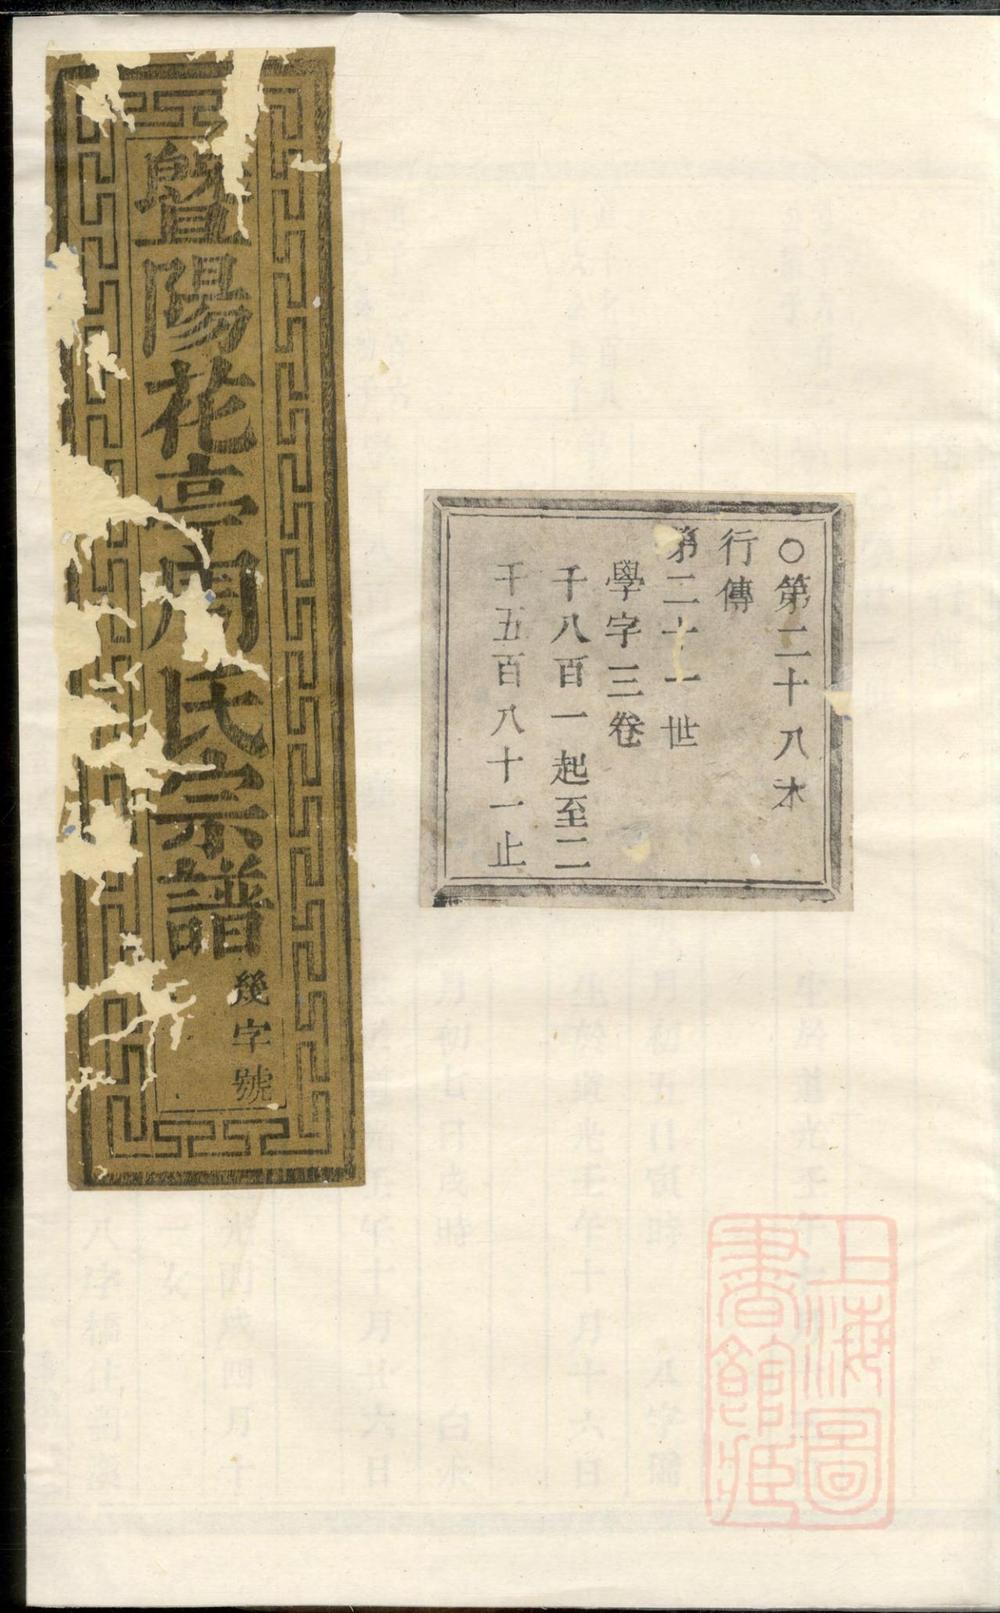 暨陽花亭周氏宗譜
幾字號
○第二十八本
行傳
第二十一世
學字三卷
千八百一起至二
千五百八十一止
上海圖
書館藏